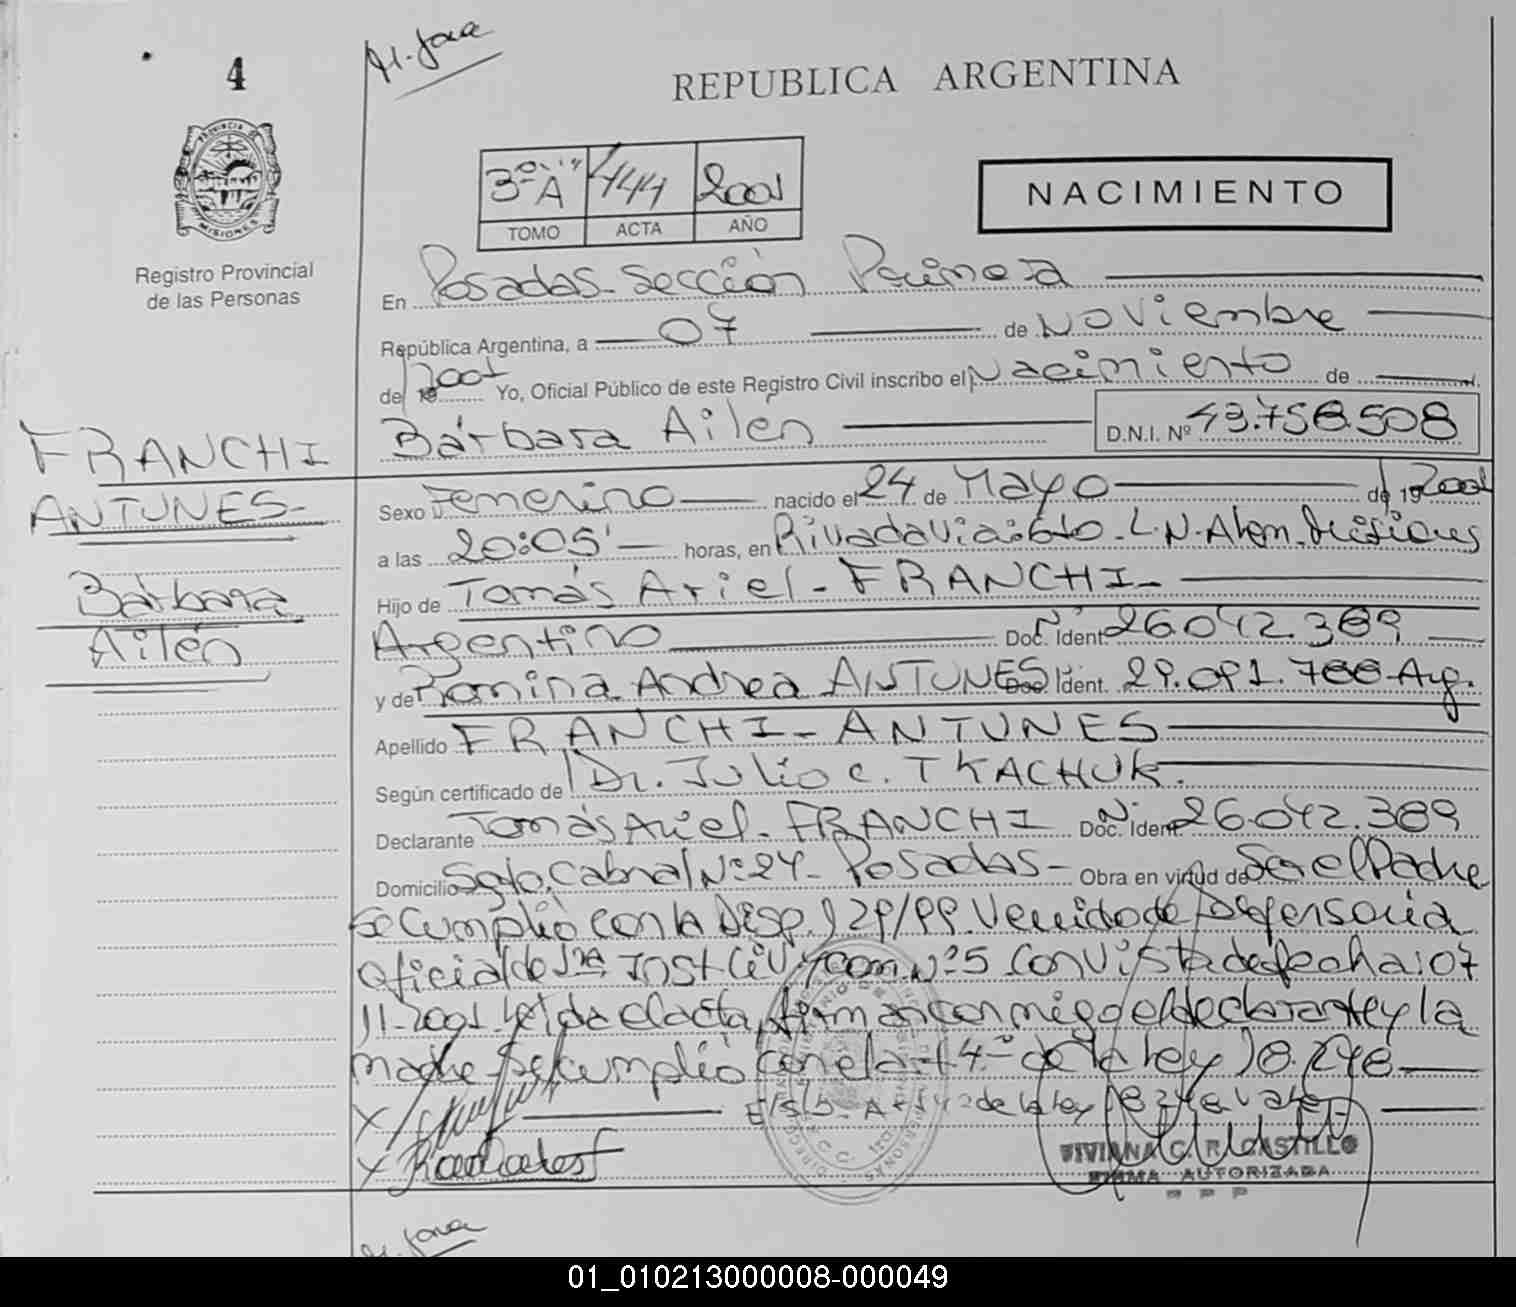 4
REPUBLICA ARGENTINA
PROVINCIA DE
MISIONES
Registro Provincial
de las Personas
3º "A" 444 2001
TOMO ACTA AÑO
NACIMIENTO
En Posadas-Sección Primera
República Argentina, a 07 de Noviembre
de 2001 Yo, Oficial Público de este Registro Civil inscribo el Nacimiento de
Bárbara Ailén D.N.I. Nº 43.758.508
FRANCHI
ANTUNES-
Bárbara
Ailén
Sexo Femenino nacido el 24 de Mayo de 19 2001
a las 20:05' horas, en Rivadavia:610-L.N.Alem.Misiones
Hijo de Tomás Ariel-FRANCHI-
Argentino Doc. Ident Nº 26.042.389
y de Romina Andrea ANTUNES Doc. Ident. 29.091.788-Arg.
Apellido FRANCHI-ANTUNES
Según certificado de Dr. Julio C. TKACHUK.
Declarante Tomás Ariel-FRANCHI Doc. Ident Nº 26.042.389
Domicilio Sgto. Cabral Nº:24- Posadas- Obra en virtud de Ser el Padre
Se Cumplió con la Disp. 129/99. Venido de Defensoria
Oficial de 1ra Inst Civ. y Com. Nº5 Con Vista de fecha:07
11-2001. Leida el acta, firman conmigo el declarante y la
madre-Se cumplió con el art 4º de la ley 18.248
E/S/b-Art 42 de la ley 18248 Vale
VIVIANA C. R. CASTILLO
FIRMA AUTORIZADA
R P P
01_010213000008-000049